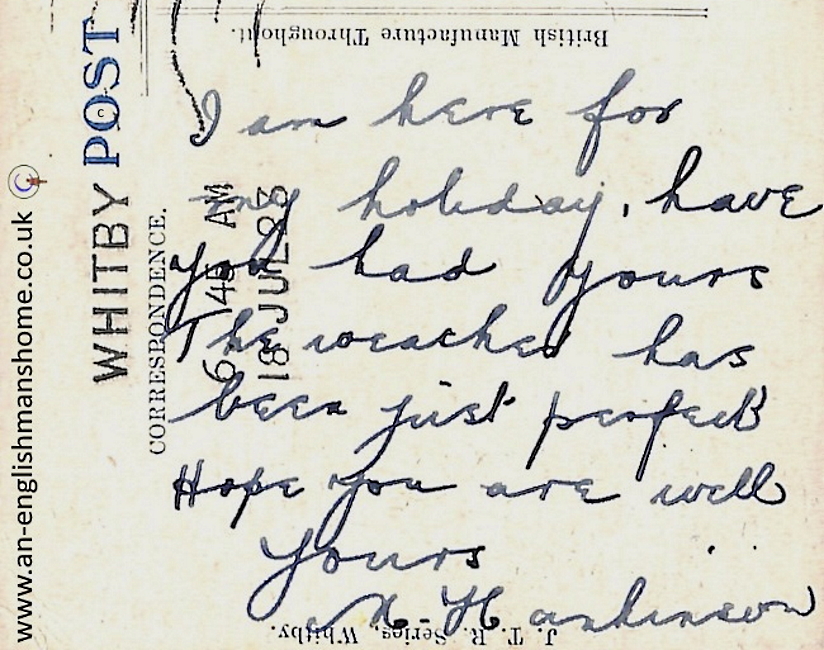 British Manufacture Throughout.
WHITBY POST C
CORRESPONDENCE.
6 45 AM
18 JUL 23
I am here for
my holiday, have
you had yours
The weather has
been just perfect
Hope you are well
Yours
Hankinson
J. T. R. Series, Whitby.
www.an-englishmanshome.co.uk